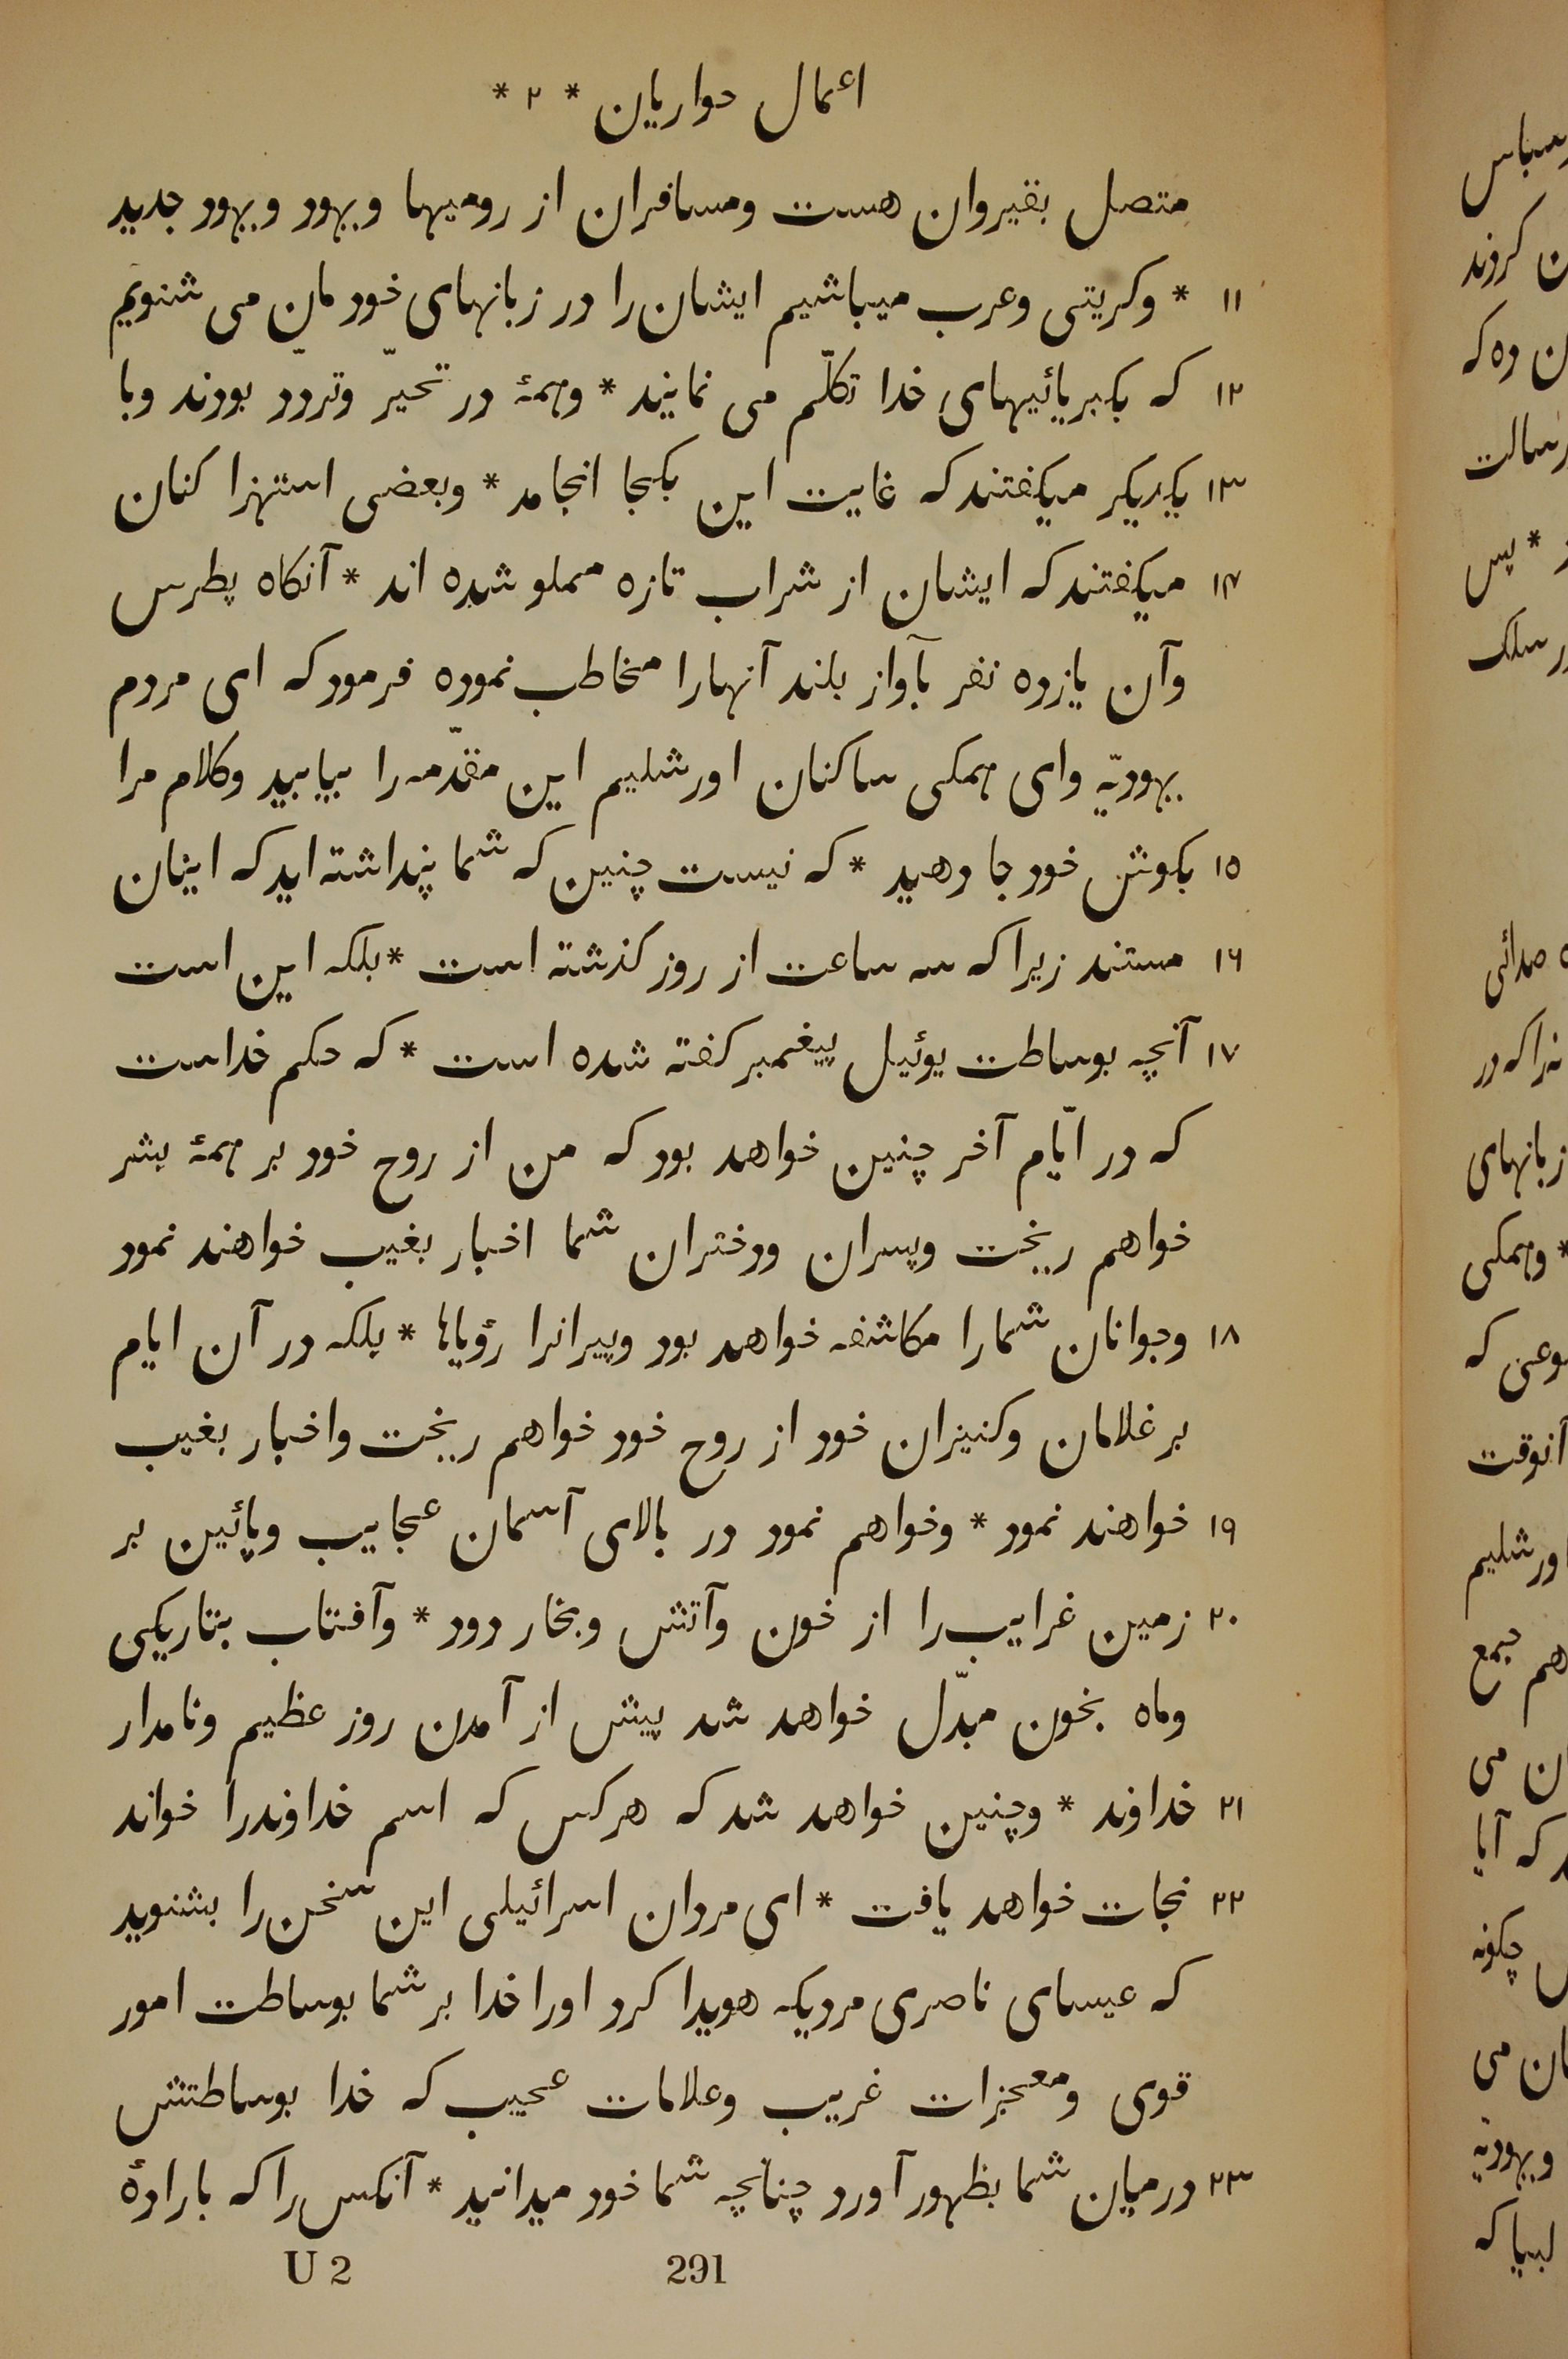 اعمال حواریان * ۲ *
متصل بقیروان هست ومسافران از رومیها ویهود ویهود جدید
۱۱ * وکریتی وعرب میباشیم ایشان را در زبانهای خودمان می شنویم
۱۲ که بکبریائیهای خدا تکلّم می نمایند * وهمهٔ در تحیّر وتردّد بودند وبا
۱۳ یکدیکر میکفتند که غایت این بکجا انجامد * وبعضی استهزا کنان
۱۴ میکفتند که ایشان از شراب تازه مملو شده اند * آنکاه پطرس
وآن یازده نفر بآواز بلند آنهارا مخاطب نموده فرمود که ای مردم
یهودیّه وای همکی ساکنان اورشلیم این مقدّمه را بیابید وکلام مرا
۱۵ بکوش خود جا دهید * که نیست چنین که شما پنداشته اید که اینان
۱۶ مستند زیرا که سه ساعت از روز کذشته است * بلکه این است
۱۷ آنچه بوساطت یوئیل پیغمبر کفته شده است * که حکم خداست
که در ایّام آخر چنین خواهد بود که من از روح خود بر همهٔ بشر
خواهم ریخت وپسران ودختران شما اخبار بغیب خواهند نمود
۱۸ وجوانان شمارا مکاشفه خواهد بود وپیرانرا رؤیاها * بلکه در آن ایام
بر غلامان وکنیزان خود از روح خود خواهم ریخت واخبار بغیب
۱۹ خواهند نمود * وخواهم نمود در بالای آسمان عجایب وپائین بر
۲۰ زمین غرایب را از خون وآتش وبخار دود * وآفتاب بتاریکی
وماه بخون مبدّل خواهد شد پیش از آمدن روز عظیم ونامدار
۲۱ خداوند * وچنین خواهد شد که هرکس که اسم خداوندرا خواند
۲۲ نجات خواهد یافت * ای مردان اسرائیلی این سخن را بشنوید
که عیسای ناصری مردیکه هویدا کرد اورا خدا بر شما بوساطت امور
قوی ومعجزات غریب وعلامات عجیب که خدا بوساطتش
۲۳ درمیان شما بظهور آورد چنانچه شما خود میدانید * آنکس را که بارادهٔ
291 U 2